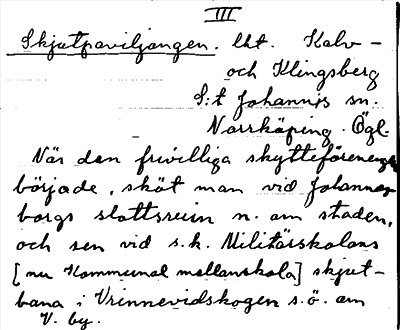 III
Skjutpaviljongen. lht. Kalv-
och Klingsberg
S:t Johannis sn.
Norrköping. Ögl.
När den frivilliga skytteföreningen
började, sköt man vid Johannis-
borgs slottsruin n. om staden,
och sen vid s.k. Militärskolans
[nu Kommunal mellanskola] skjut-
bana i Vrinnevidskogen s.ö. om
V. by.